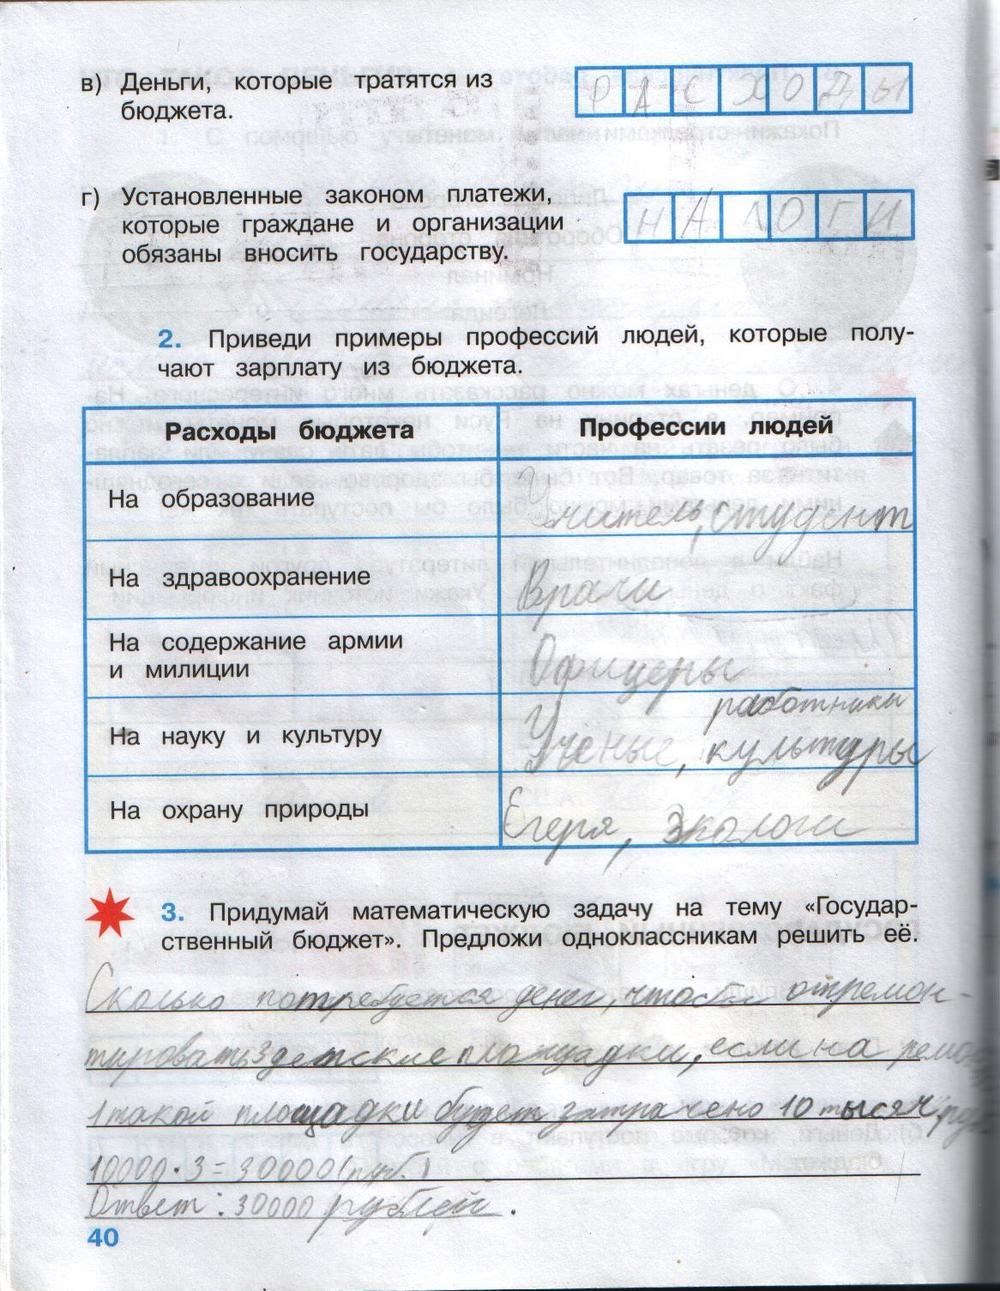 в) Деньги, которые тратятся из
бюджета.
РАСХОДЫ
г) Установленные законом платежи,
которые граждане и организации
обязаны вносить государству.
НАЛОГИ
2. Приведи примеры профессий людей, которые полу-
чают зарплату из бюджета.
Расходы бюджета
Профессии людей
На образование
Учитель, студент
На здравоохранение
Врачи
На содержание армии
и милиции
Офицеры
На науку и культуру
Учёные, работники культуры
На охрану природы
Егеря, Экологи
3. Придумай математическую задачу на тему «Государ-
ственный бюджет». Предложи одноклассникам решить её.
Сколько потребуется денег, чтобы отремон-
тировать 3 детские площадки, если на ремонт
1 такой площадки будет затрачено 10 тысяч
10000·3=30000(руб.)
Ответ: 30000 рублей.
40